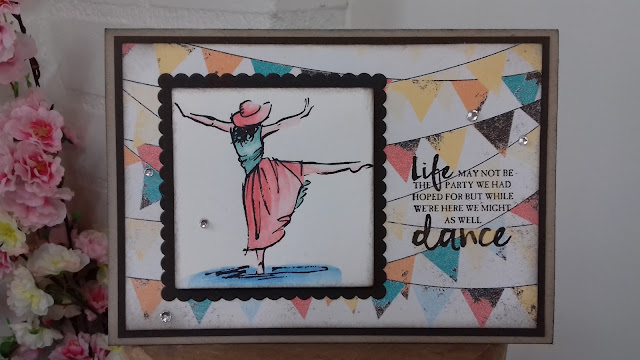 Life MAY NOT BE
THE PARTY WE HAD
HOPED FOR BUT WHILE
WE'RE HERE WE MIGHT
AS WELL
dance